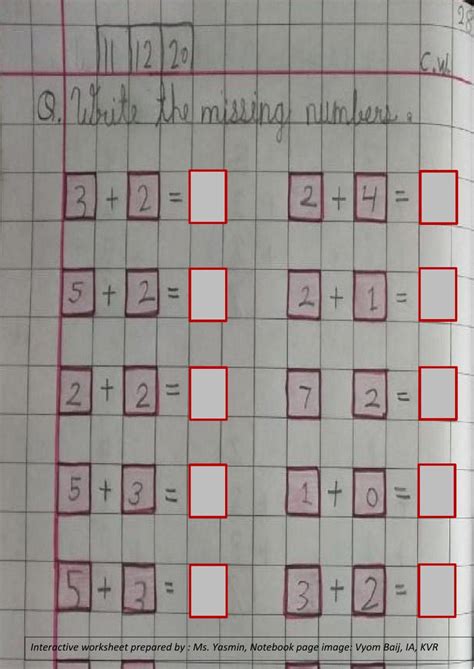 28
11 12 20
C.W.
Q. Write the missing numbers.
3 + 2 = 2 + 4 =
5 + 2 = 2 + 1 =
2 + 2 = 7 2 =
5 + 3 = 1 + 0 =
5 + 3 = 3 + 2 =
Interactive worksheet prepared by : Ms. Yasmin, Notebook page image: Vyom Baij, IA, KVR